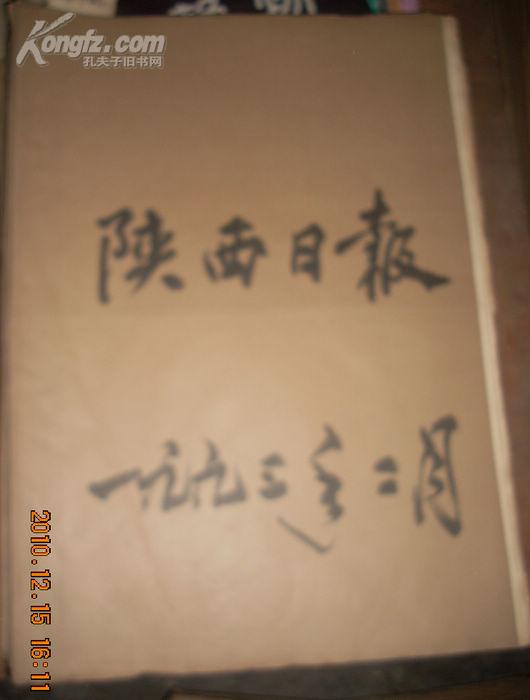 Kongfz.com
孔夫子旧书网
陕西日报
一九九三年二月
2010.12.15 16:11